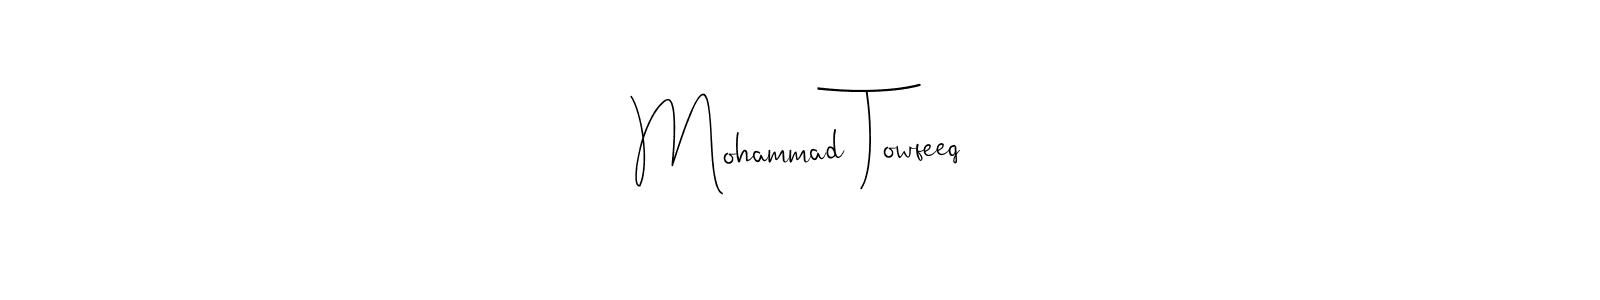 Mohammad Towfeeq